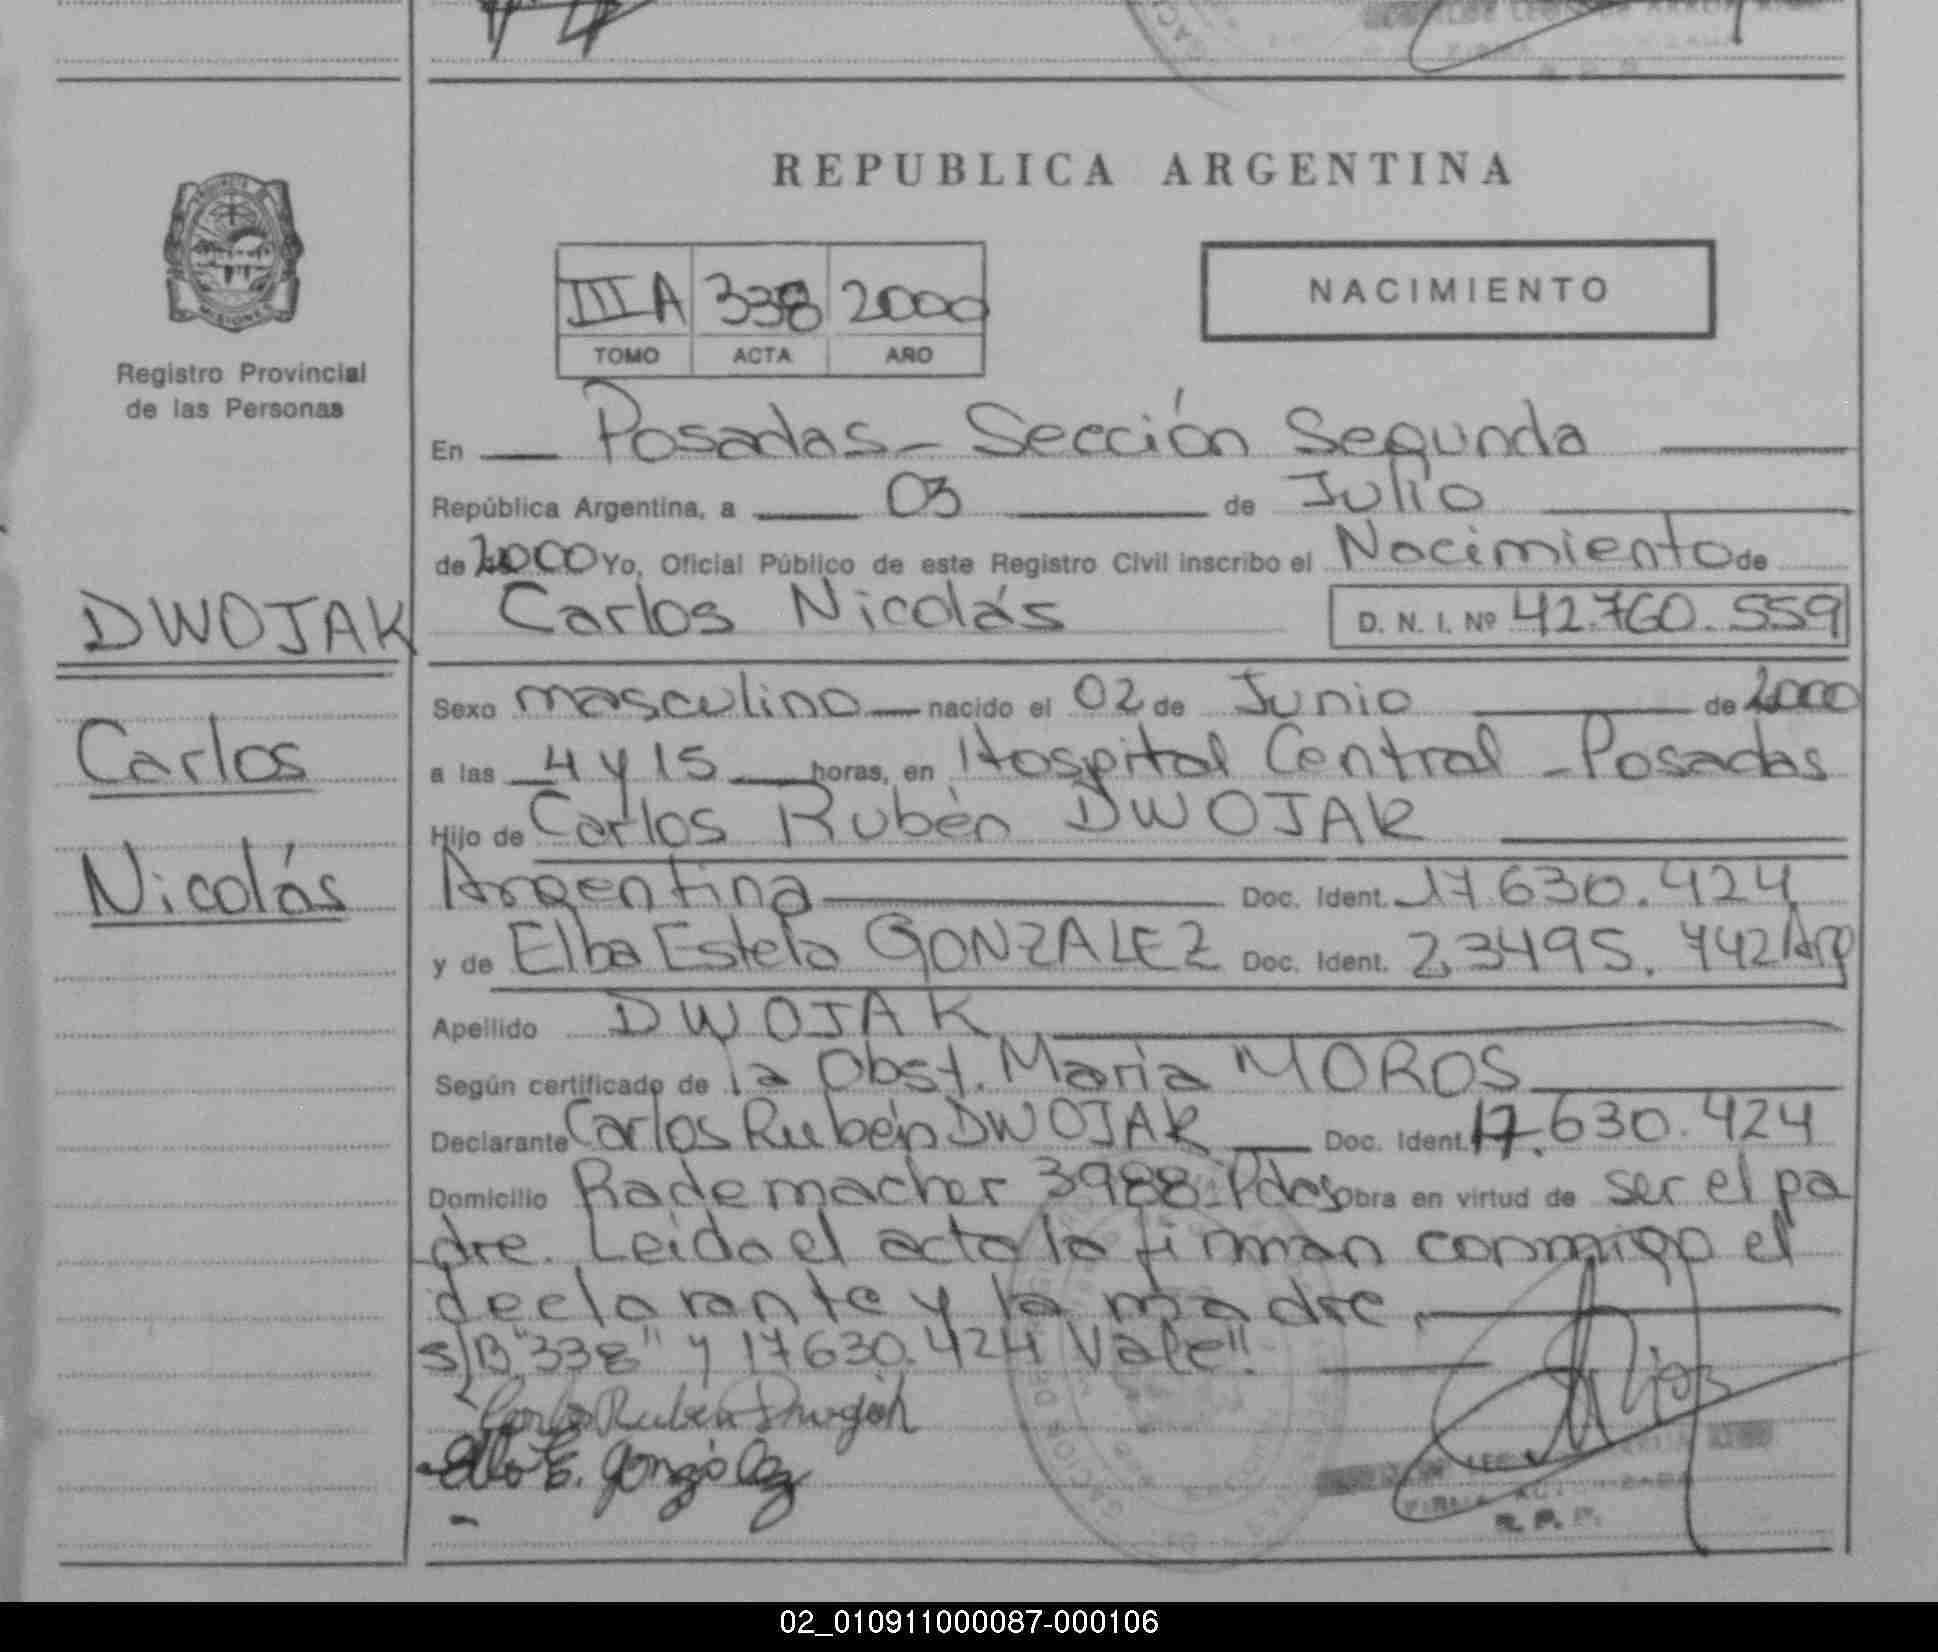 REPUBLICA ARGENTINA
MISIONES
Registro Provincial
de las Personas
IIIA 338 2000
TOMO ACTA AÑO
NACIMIENTO
En Posadas - Sección Segunda
República Argentina, a 03 de Julio
de 2000 Yo, Oficial Público de este Registro Civil inscribo el Nacimiento de
DWOJAK
Carlos Nicolás D. N. I. Nº 42.760.559
Sexo masculino nacido el 02 de Junio de 2000
Carlos
a las 4 y 15 horas, en Hospital Central - Posadas
Hijo de Carlos Rubén DWOJAK
Nicolás
Argentina Doc. Ident. 17.630.424
y de Elba Estela GONZALEZ Doc. Ident. 23495.442 Arg
Apellido DWOJAK
Según certificado de la Obst. Maria MOROS
Declarante Carlos Rubén DWOJAK Doc. Ident. 17.630.424
Domicilio Rademacher 3988 - Pdas Obra en virtud de ser el pa
dre. Leida el acta la firman conmigo el
declarante y la madre.
S/B "338" y 17630.424 Vale".
Carlos Ruben Dwojak
Elba E. González
FIRMA
R. P. P.
02_010911000087-000106